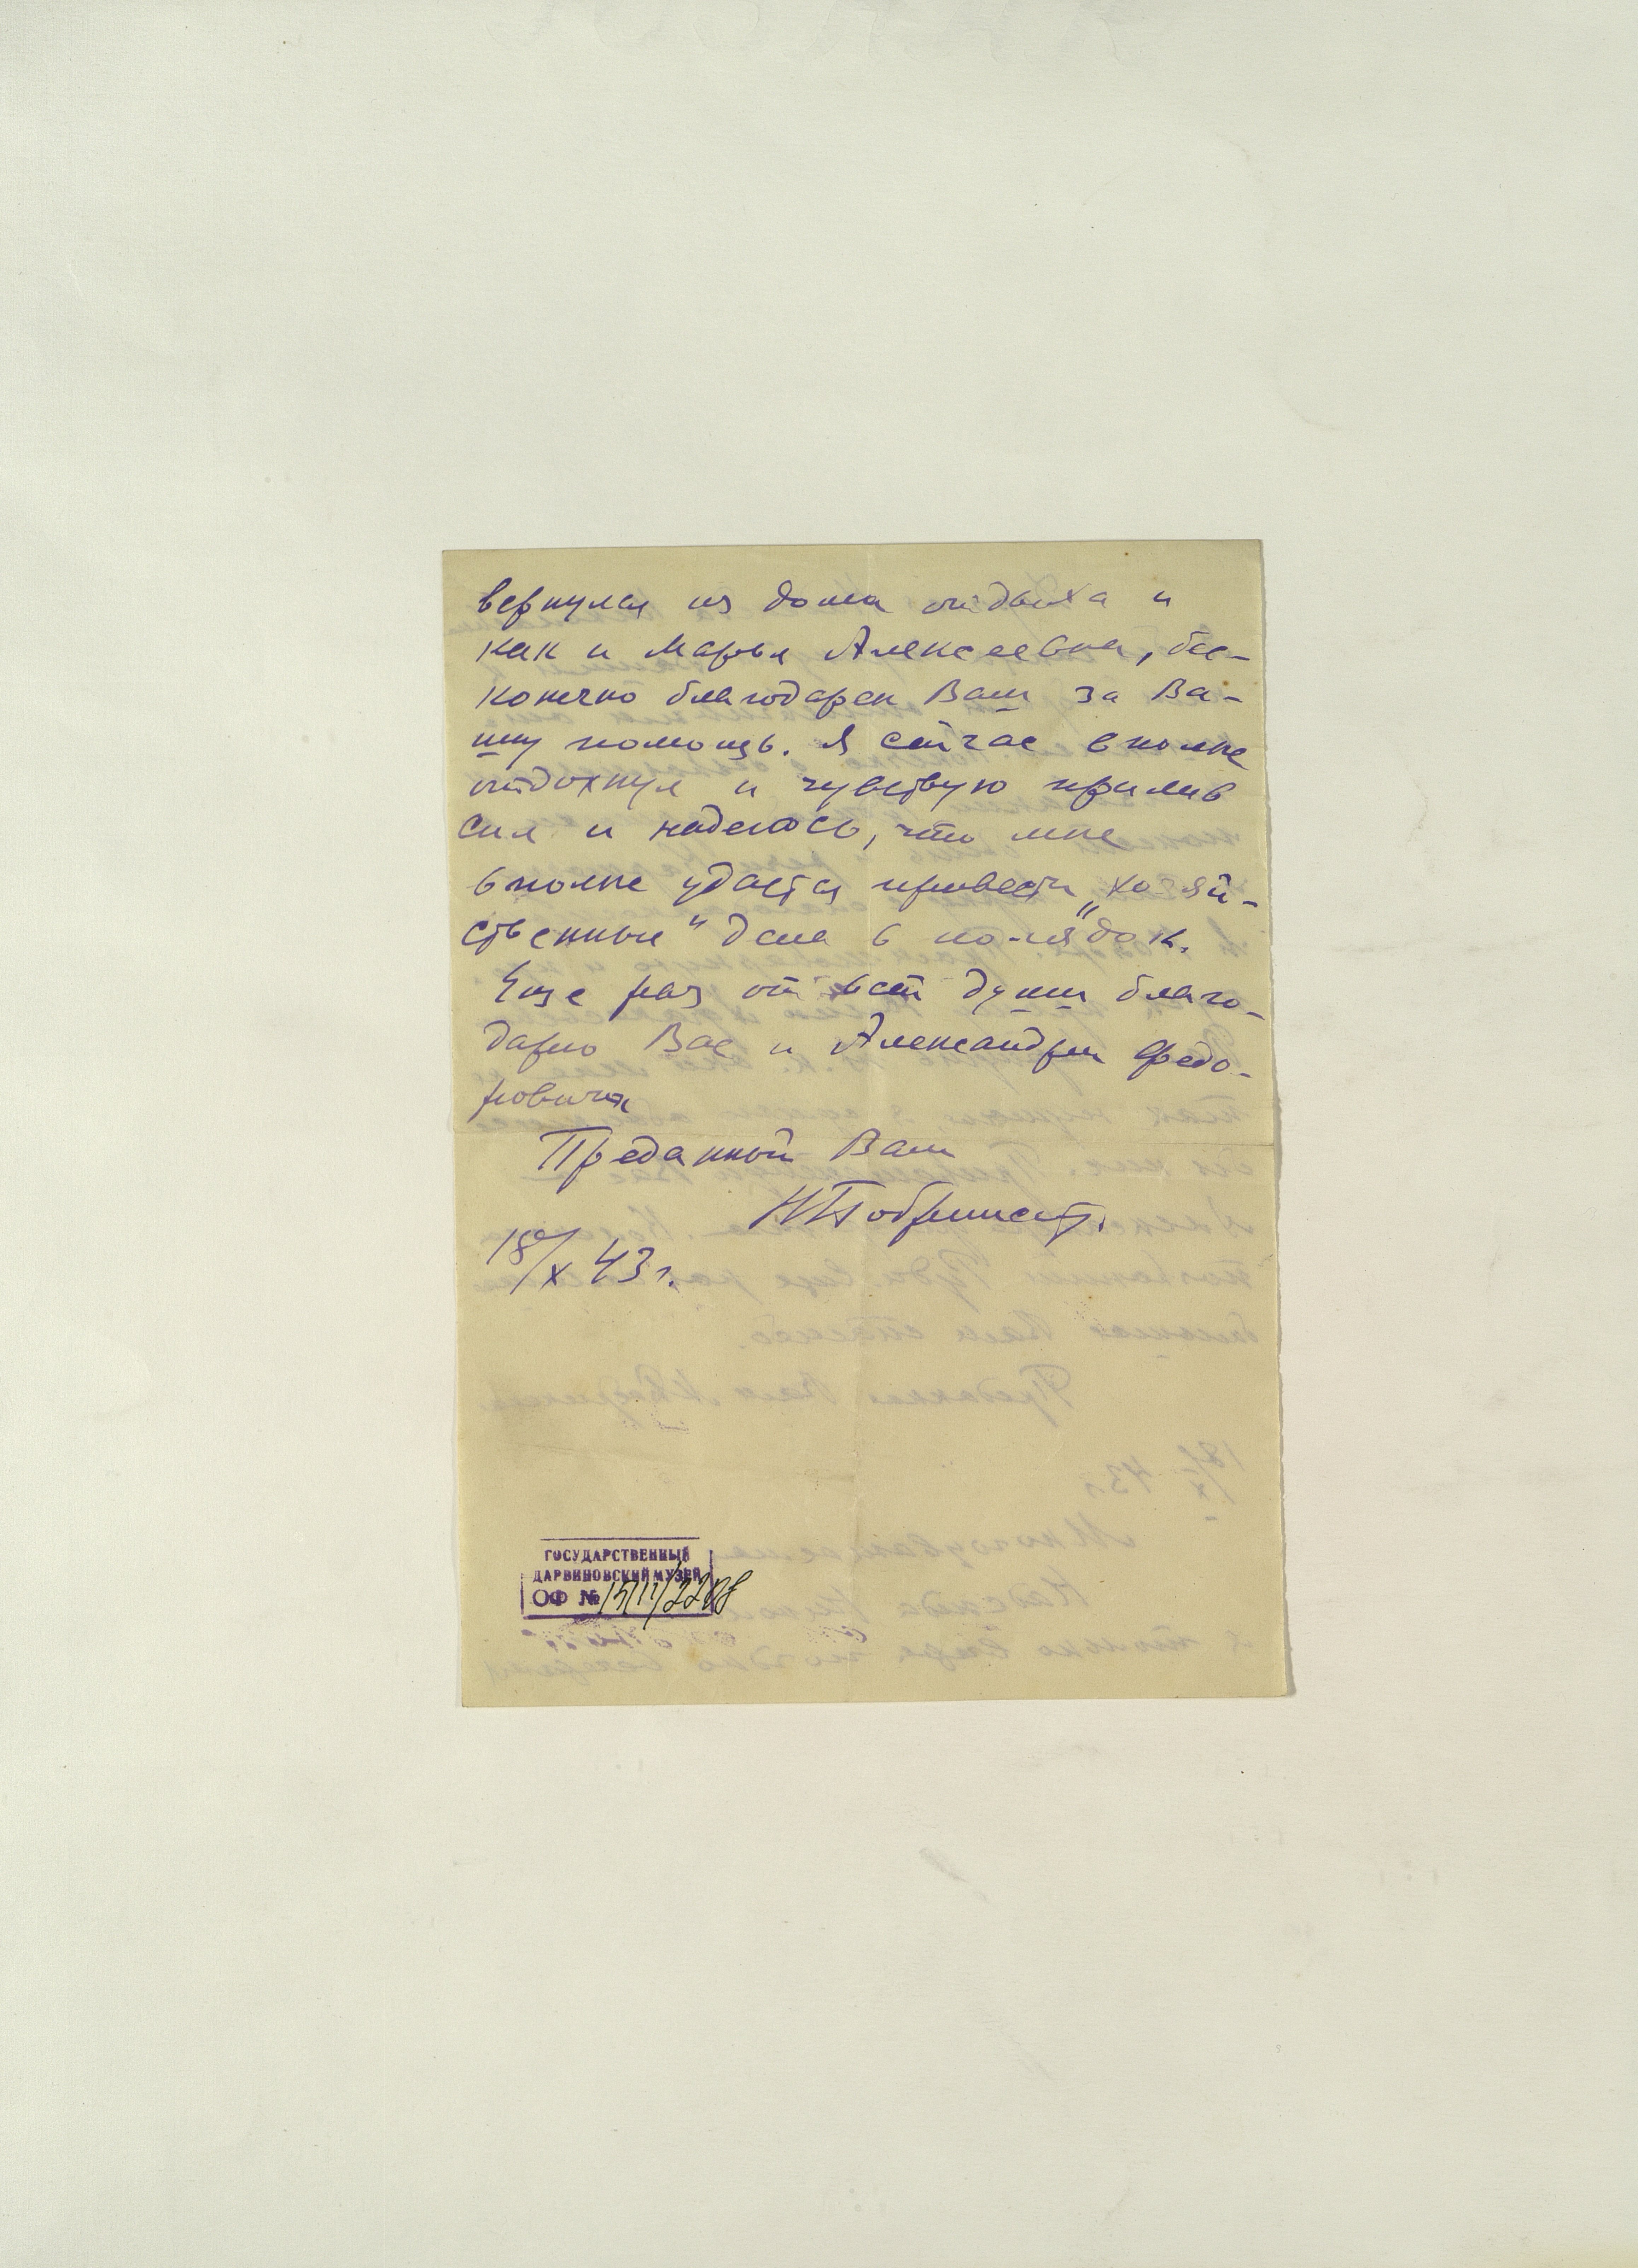 вернулся из дома отдыха и
как и Марья Алексеевна, бес-
конечно благодарен Вам за Ва-
шу помощь. Я сейчас вполне
отдохнул и чувствую прилив
сил и надеюсь, что мне
вполне удастся привести „хозяй-
ственные" дела в порядок.
Еще раз от всей души благо-
дарю Вас и Александра Федо-
ровича
Преданный Вам
18/X 43 г.
ГОСУДАРСТВЕННЫЙ
ДАРВИНОВСКИЙ МУЗЕЙ
ОФ №